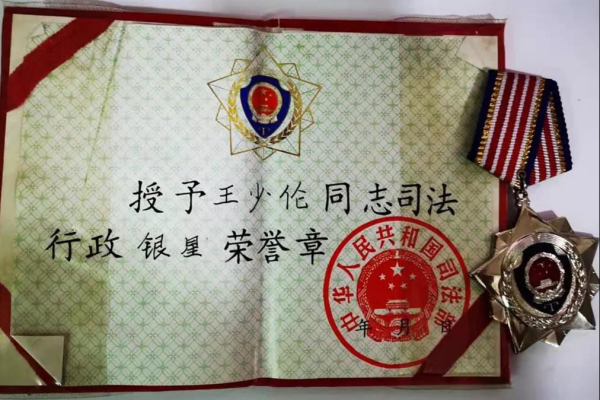 授予王少伦同志司法
行政银星荣誉章
中华人民共和国司法部
年 月 日